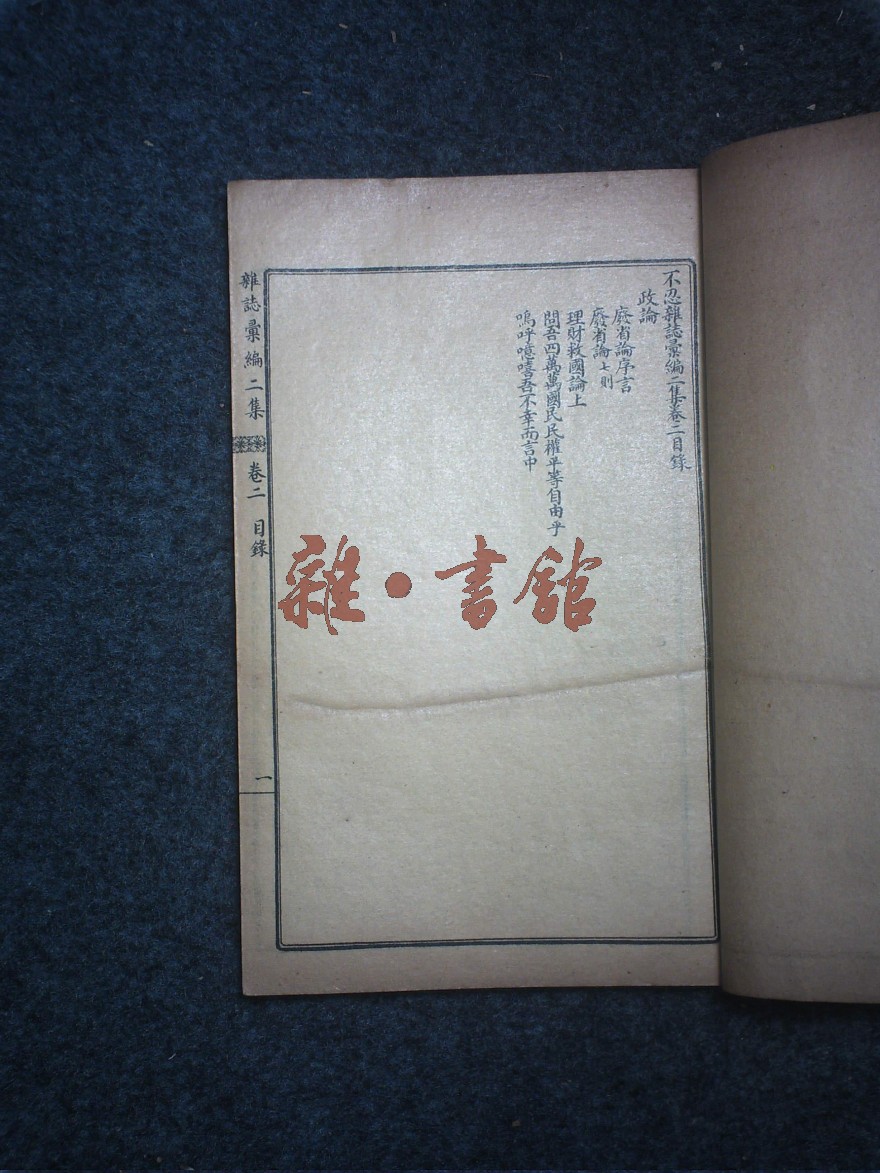 不忍雜誌彙編二集卷二目錄
政論
廢省論序言
廢省論七則
理財救國論上
問吾四萬萬國民民權平等自由乎
嗚呼噫嘻吾不幸而言中
雜誌彙編二集 卷二 目錄 一
雜·書館